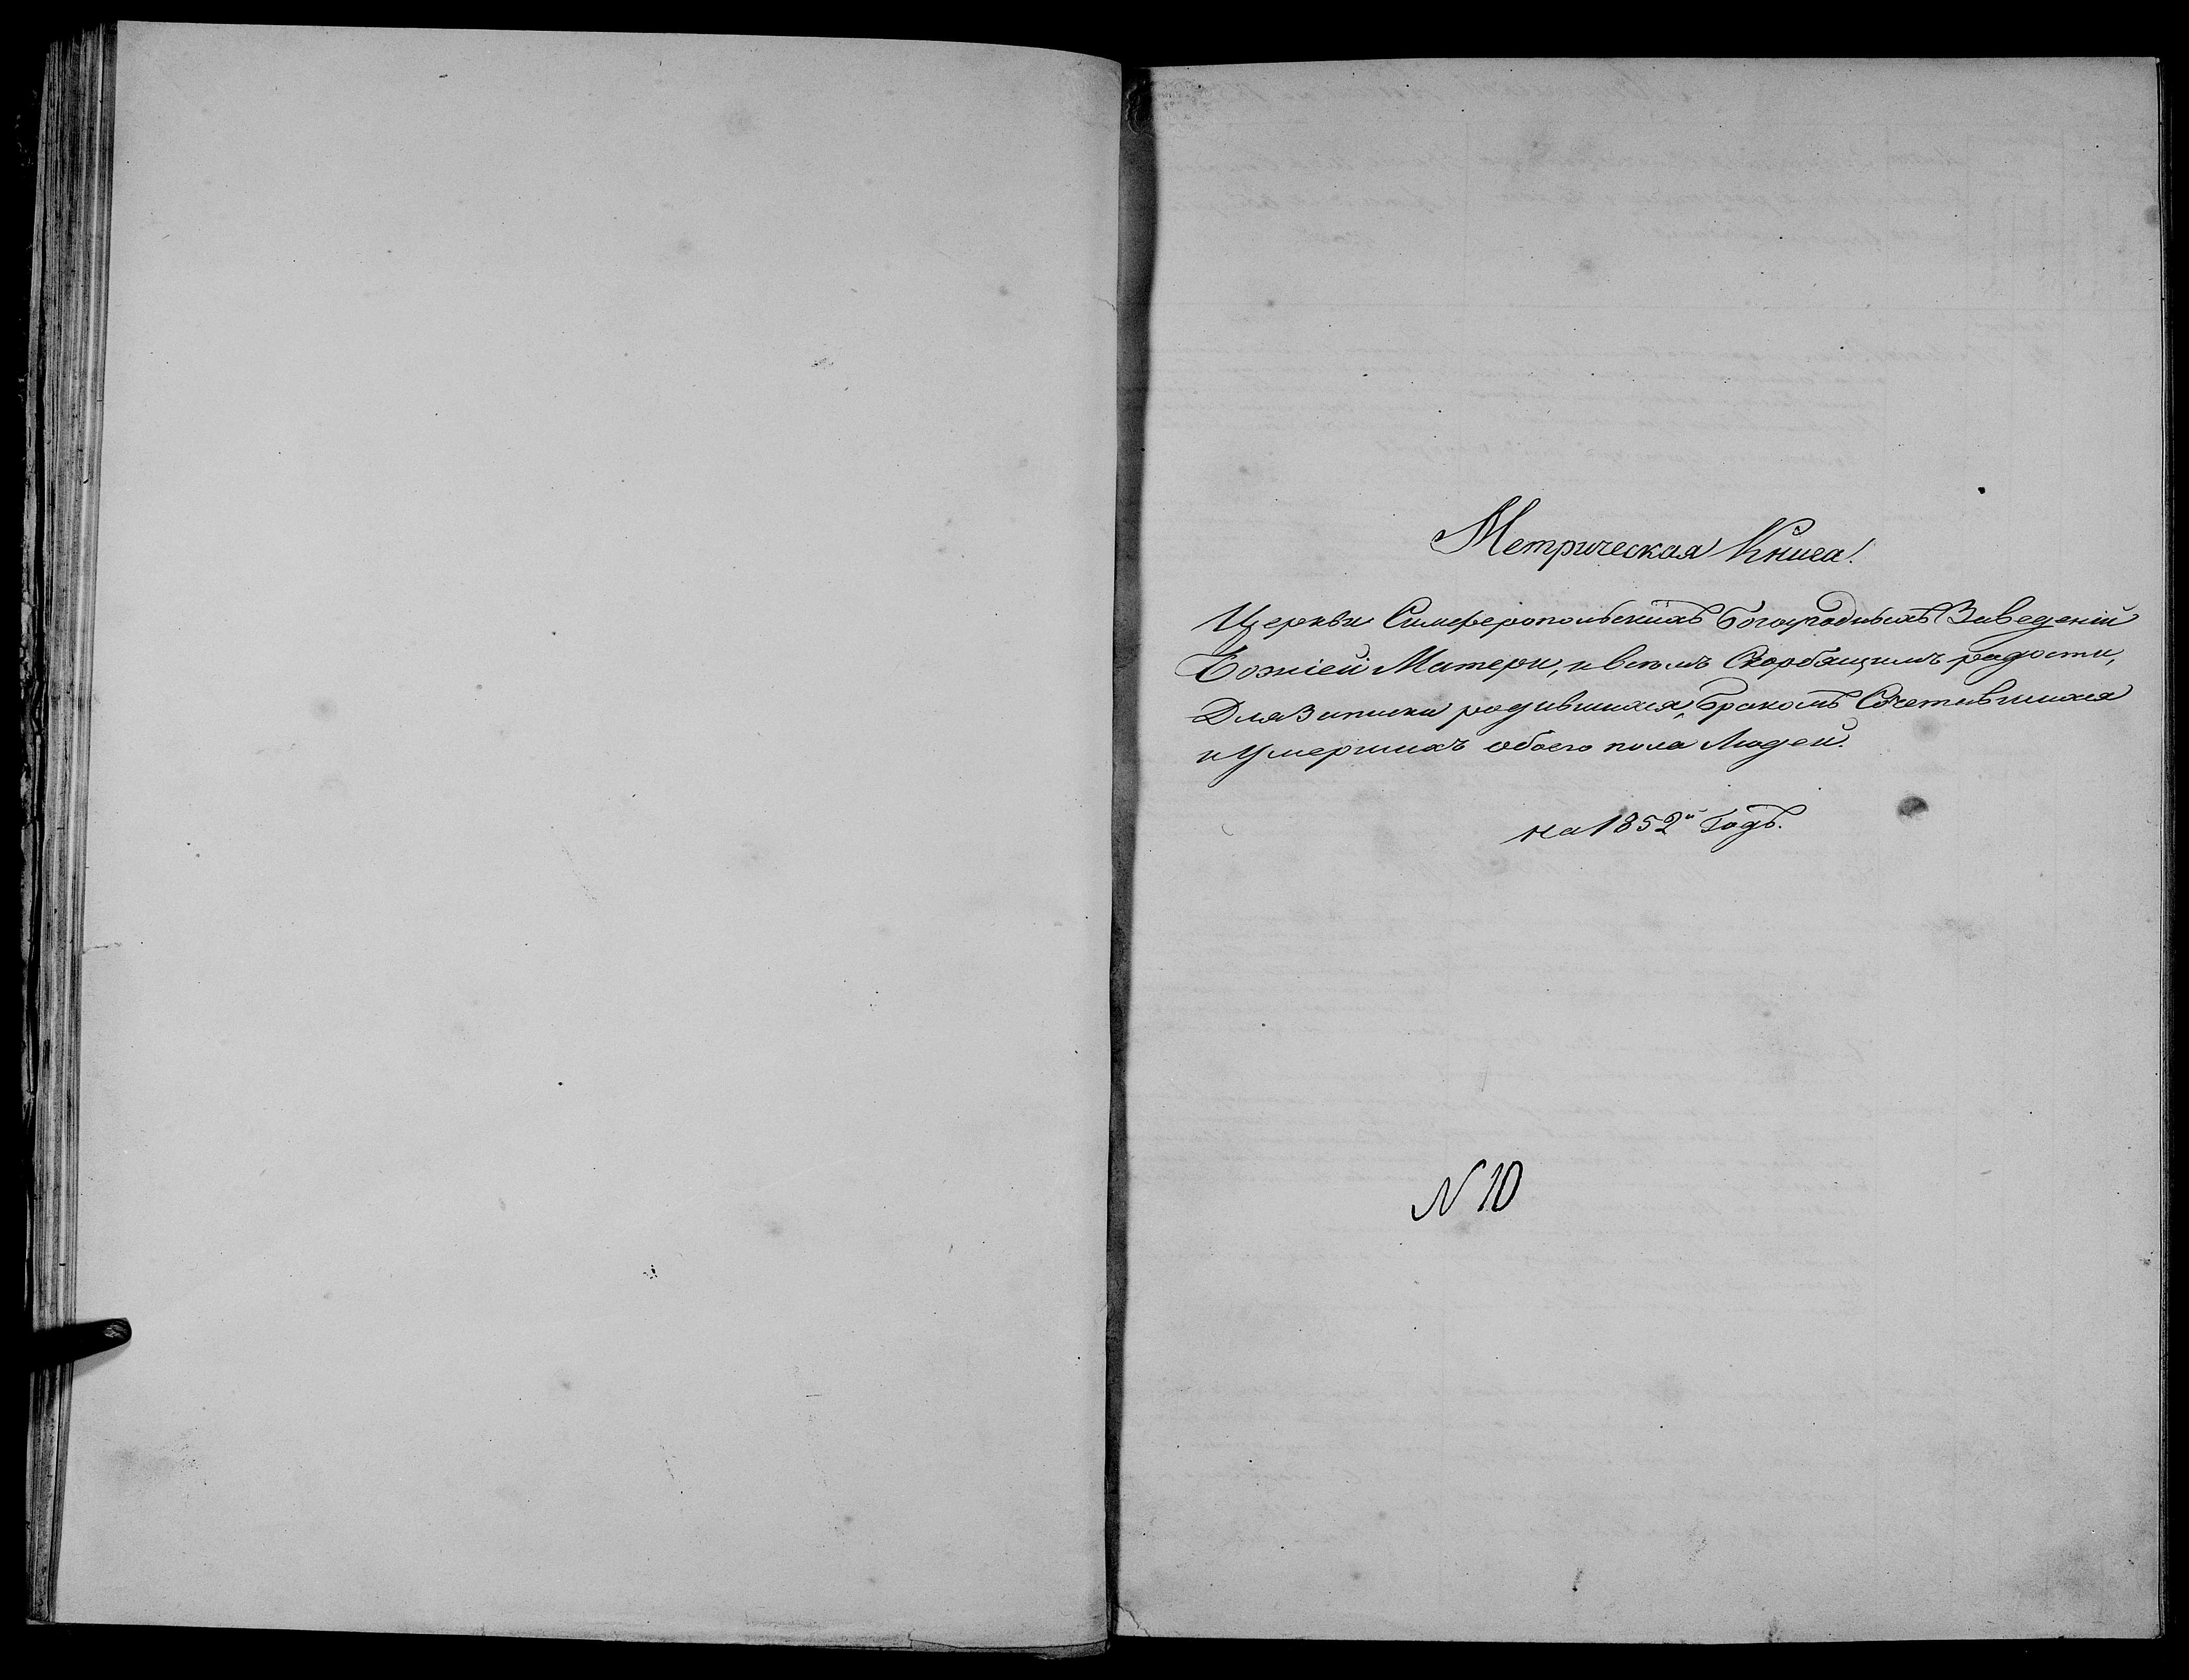 Метрическая Книга!
Церкви Симферопольскихъ Богоугодныхъ Заведеній
Божіей Матери, и всѣмъ Скорбящимъ радости,
Для Записки родившихся, бракомъ Сочетавшихся
и Умершихъ обоего пола Людей.
на 1852й Годъ.
N 10